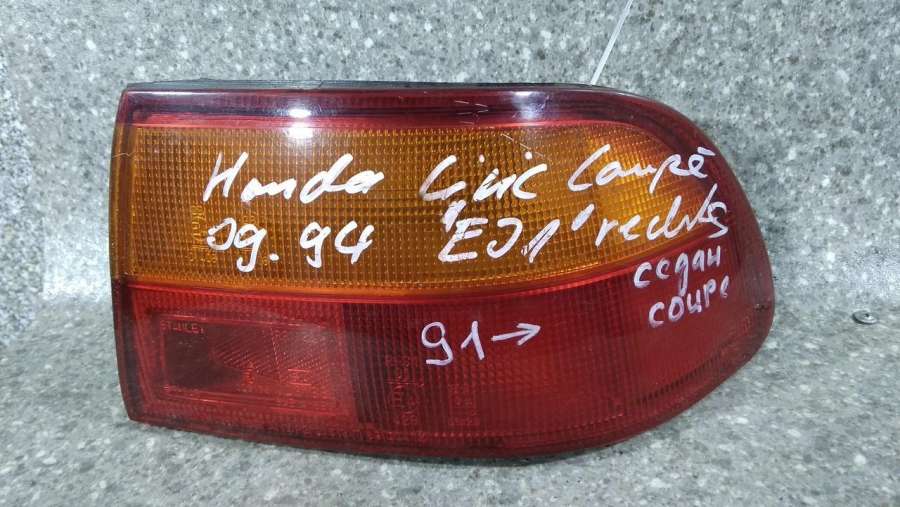 Honda Civic Coupé
09.94 "EJ1" rechts
седан
coupe
91→
STANLEY